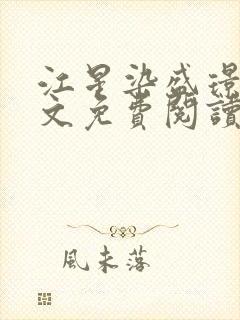 江星染盛璟
文免費閱讀
風未落